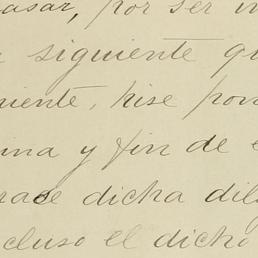 asar, por ser
siguiente qu
iente, hise pon
ina y fin de
race dicha dil
cluso el dicho